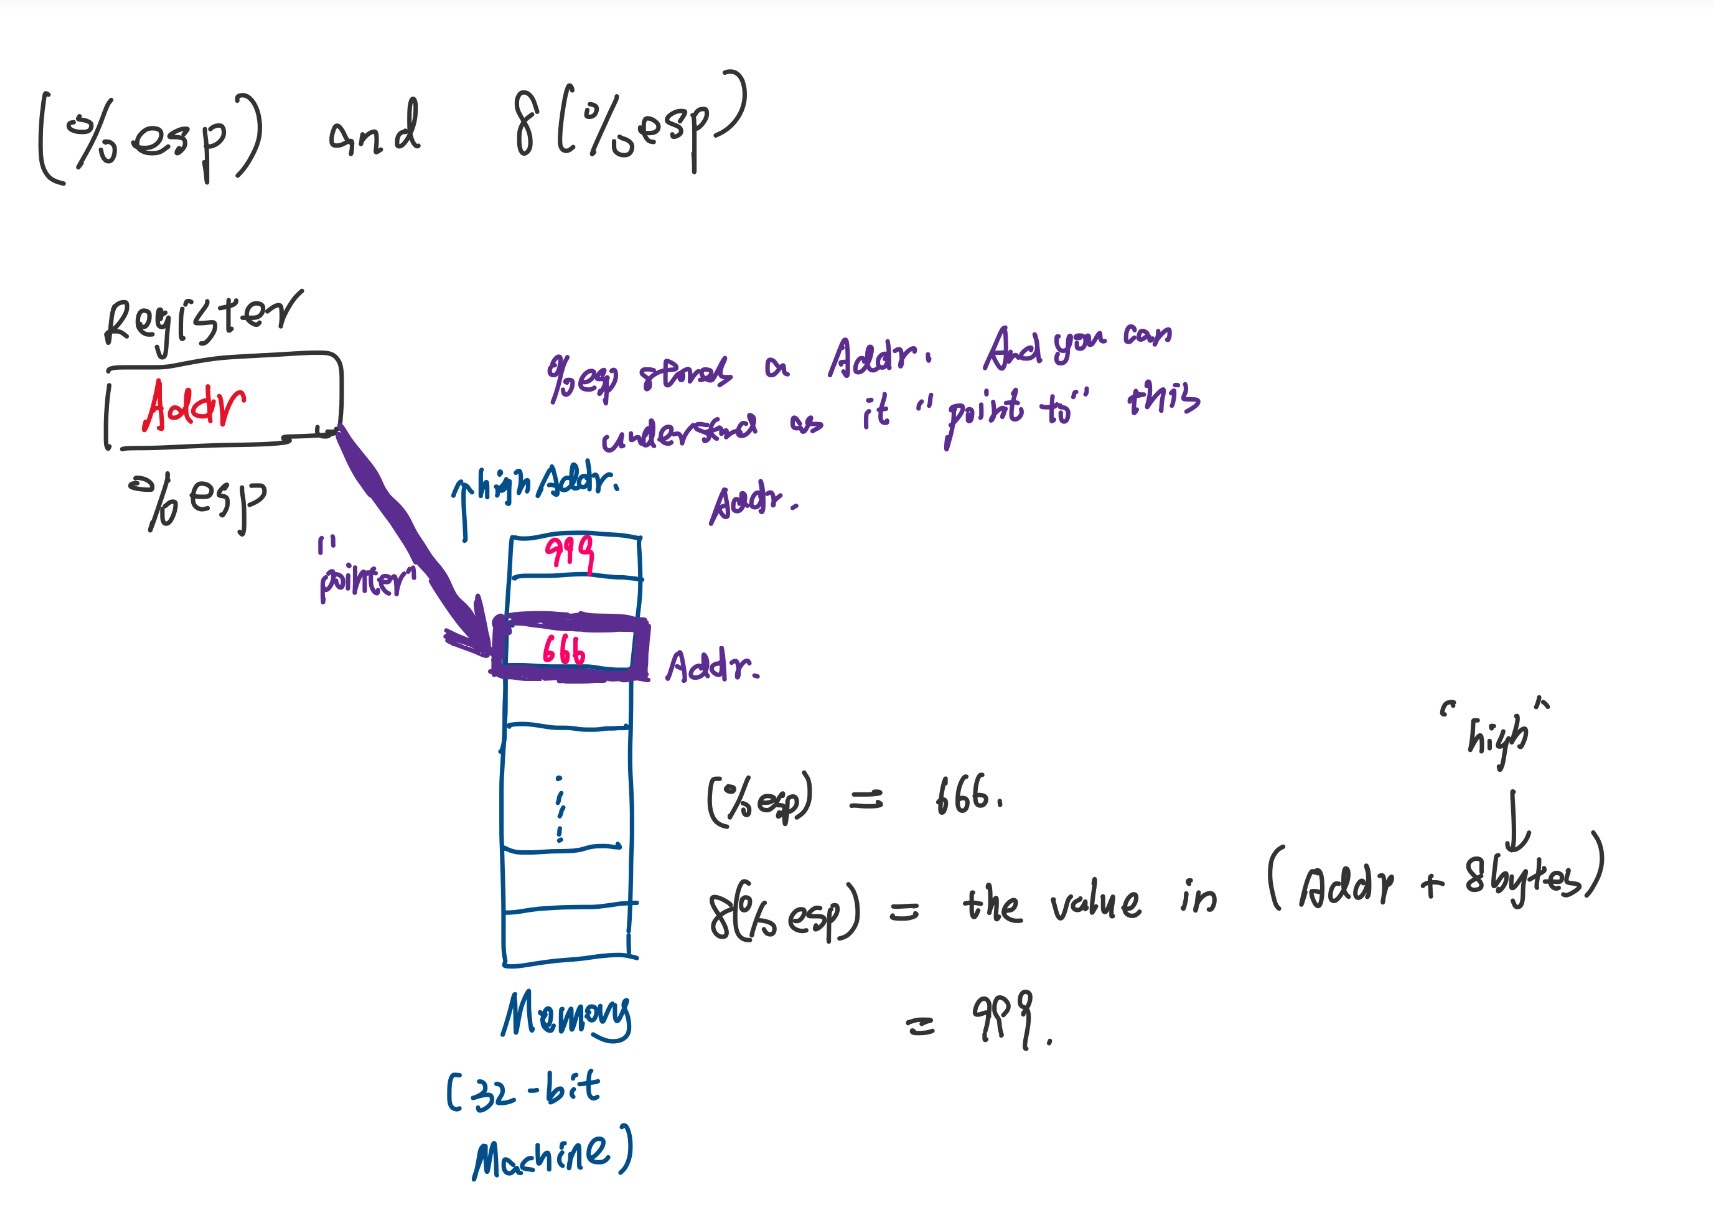 (%esp) and 8(%esp)
Register
Addr
%esp
%esp stores a Addr. And you can
understand as it "point to" this
Addr.
high Addr.
"pointer"
999
666
Addr.
(%esp) = 666.
"high"
8(%esp) = the value in (Addr + 8bytes)
= 999.
Memory
(32-bit
Machine)